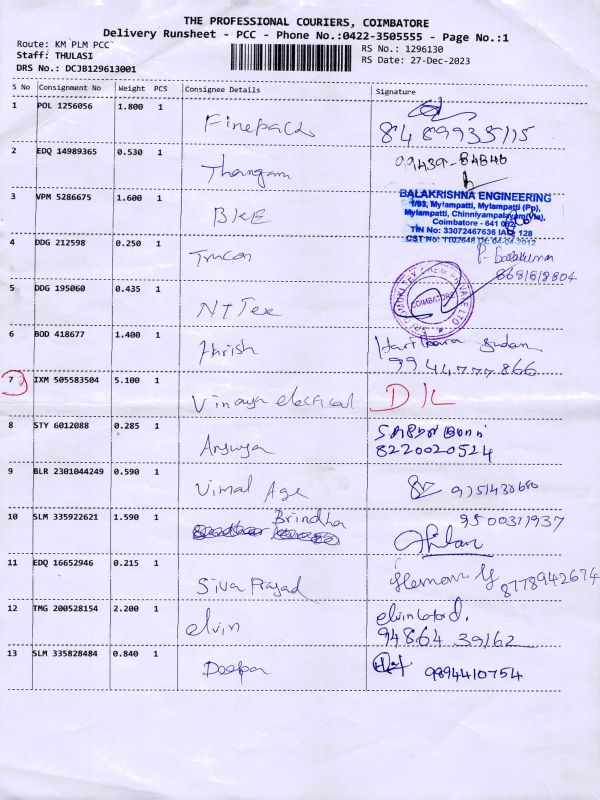 THE PROFESSIONAL COURIERS, COIMBATORE
Delivery Runsheet - PCC - Phone No.:0422-3505555 - Page No.:1
Route: KM PLM PCC
RS No.: 1296130
Staff: THULASI
RS Date: 27-Dec-2023
DRS No.: DCJB129613001
S No Consignment No Weight PCS Consignee Details Signature
1 POL 1256056 1.800 1 Finepack 8489935115
2 EDQ 14989365 0.530 1 Thangam 99439-84840
3 VPM 5286675 1.600 1 BKE
BALAKRISHNA ENGINEERING
1/93, Mylampatti, Mylampatti (Pp),
Mylampatti, Chinniyampalayam(Via),
Coimbatore - 641 062
TIN No: 33072467636 128
CST No:
4 DDG 212598 0.250 1 P. Balakumar
8681618804
5 DDG 195060 0.435 1 NT Tex
COIMBATORE
6 BOD 418677 1.400 1 Harish
9944777866
7 IXM 505583504 5.100 1 Vinaya electrical D/L
8 STY 6012088 0.285 1
8220020524
9 BLR 2301044249 0.590 1 Vimal Age 9751430680
10 SLM 335922621 1.590 1 Brindha 9500311937
11 EDQ 16652946 0.215 1 Siva Prasad 8778942674
12 TMG 200528154 2.200 1 elvin
94864 39162
13 SLM 335828484 0.840 1 Deepa 9894410754